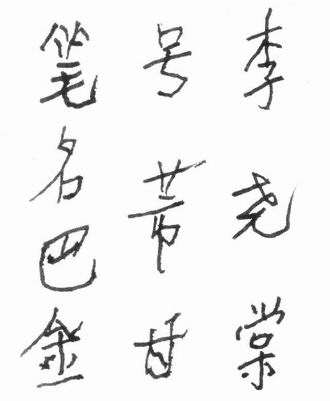 李尧棠
号芾甘
笔名巴金